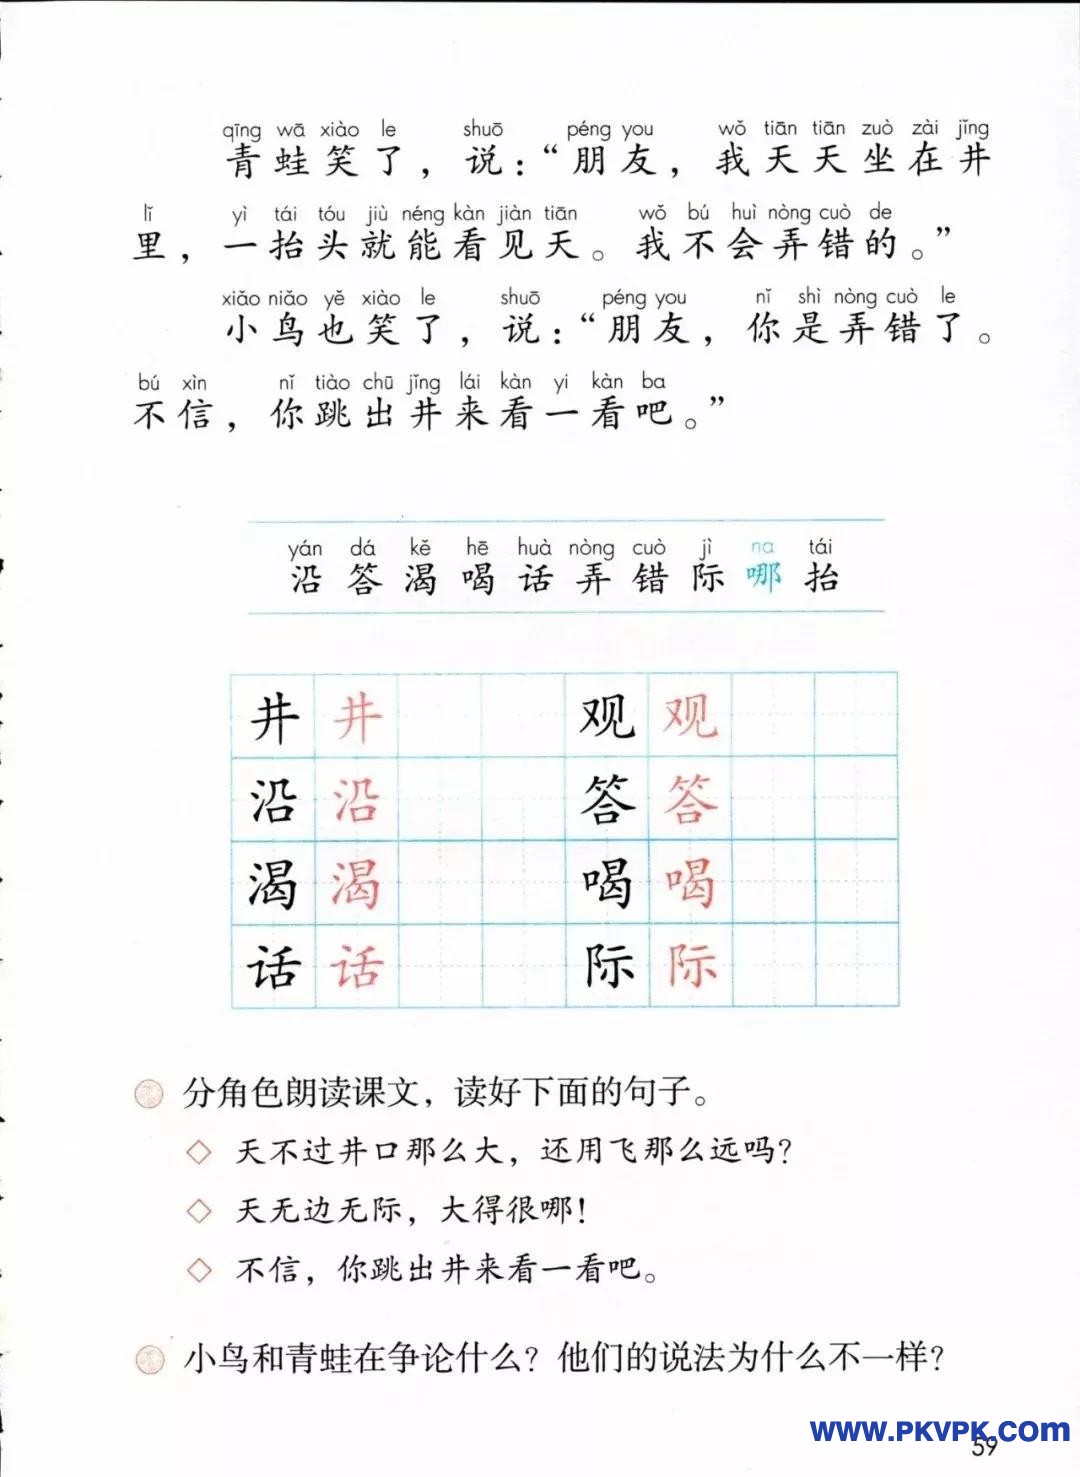 qīng wā xiào le shuō péng you wǒ tiān tiān zuò zài jǐng
青蛙笑了，说：“朋友，我天天坐在井
lǐ yì tái tóu jiù néng kàn jiàn tiān wǒ bú huì nòng cuò de
里，一抬头就能看见天。我不会弄错的。”
xiǎo niǎo yě xiào le shuō péng you nǐ shì nòng cuò le
小鸟也笑了，说：“朋友，你是弄错了。
bú xìn nǐ tiào chū jǐng lái kàn yi kàn ba
不信，你跳出井来看一看吧。”
yán dá kě hē huà nòng cuò jì na tái
沿答渴喝话弄错际哪抬
井 井 观 观
沿 沿 答 答
渴 渴 喝 喝
话 话 际 际
分角色朗读课文，读好下面的句子。
◇ 天不过井口那么大，还用飞那么远吗？
◇ 天无边无际，大得很哪！
◇ 不信，你跳出井来看一看吧。
小鸟和青蛙在争论什么？他们的说法为什么不一样？
www.PKVPK.com
59